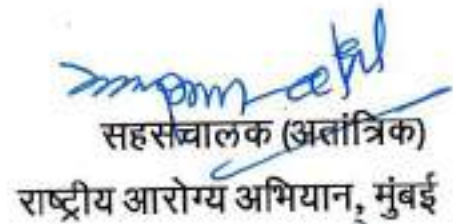 सहसंचालक (अतांत्रिक)
राष्ट्रीय आरोग्य अभियान, मुंबई